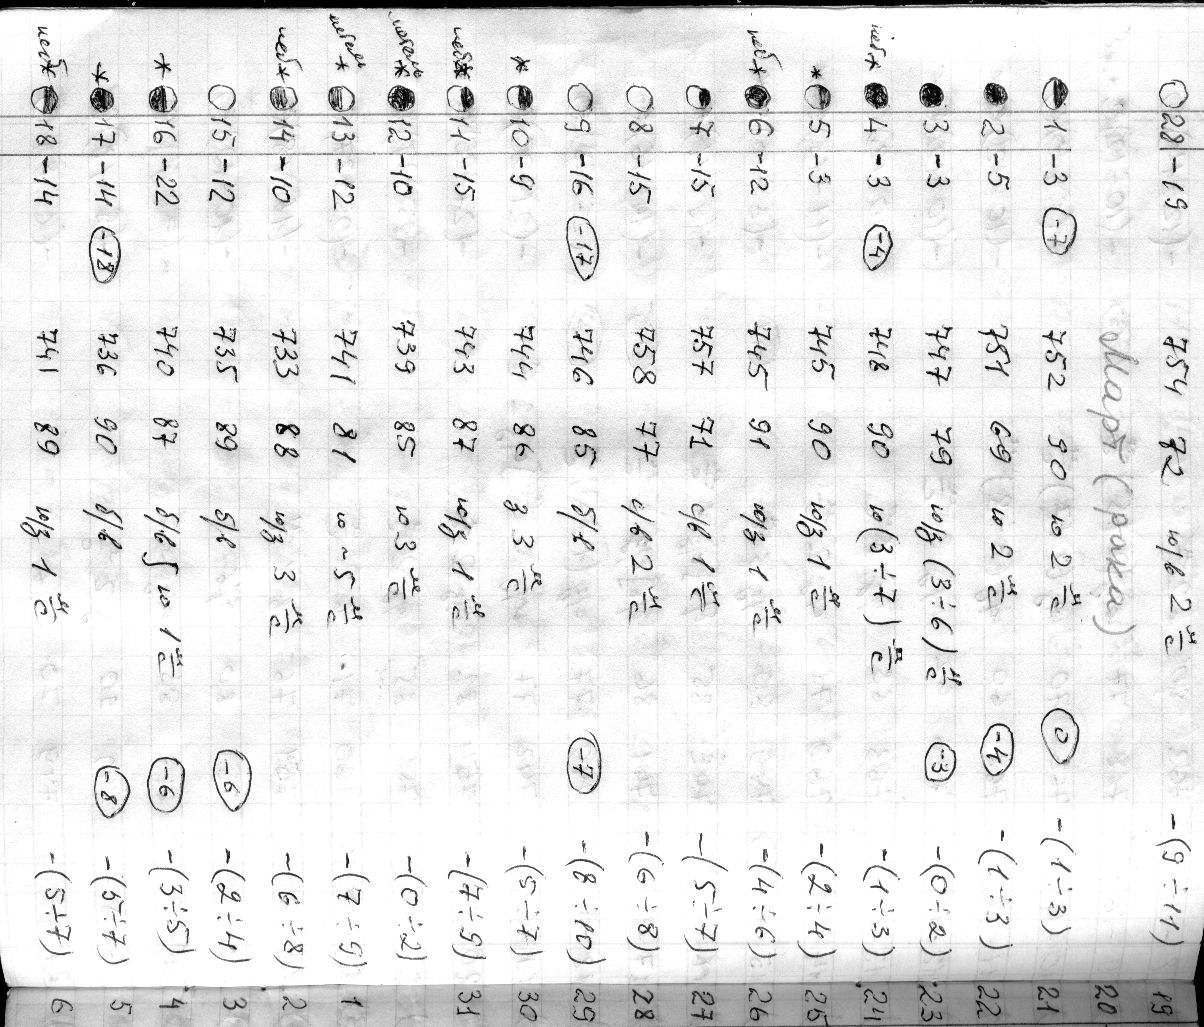 28 -19 754 72 ю/в 2 м/с -(9÷11) 19
Март (рука) 20
1 -3 -7 752 90 ю 2 м/с 0 -(1÷3) 21
2 -5 751 69 ю 2 м/с -4 -(1÷3) 22
3 -3 747 79 ю/з (3÷6) м/с -3 -(0÷2) 23
неб* 4 -3 -4 748 90 ю (3÷7) м/с -(1÷3) 24
* 5 -3 745 90 ю/з 1 м/с -(2÷4) 25
неб* 6 -12 745 91 ю/з 1 м/с -(4÷6) 26
7 -15 757 71 с/в 1 м/с -(5÷7) 27
8 -15 758 77 с/в 2 м/с -(6÷8) 28
9 -16 -17 746 85 б/в -7 -(8÷10) 29
* 10 -9 744 86 з 3 м/с -(5÷7) 30
неб* 11 -15 743 87 ю/з 1 м/с -(7÷9) 31
12 -10 739 85 ю 3 м/с -(0÷2)
13 -12 741 81 ю ~5 м/с -(7÷9) 1
неб* 14 -10 733 88 ю/з 3 м/с -(6÷8) 2
15 -12 735 89 б/в -6 -(2÷4) 3
* 16 -22 740 87 б/в ю 1 м/с -6 -(3÷5) 4
* 17 -14 -18 736 90 б/в -8 -(5÷7) 5
неб* 18 -14 741 89 ю/з 1 м/с -(5÷7) 6